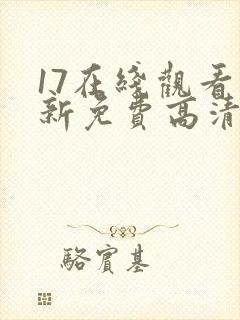 17在綫觀看
新免費高清
駱賓基